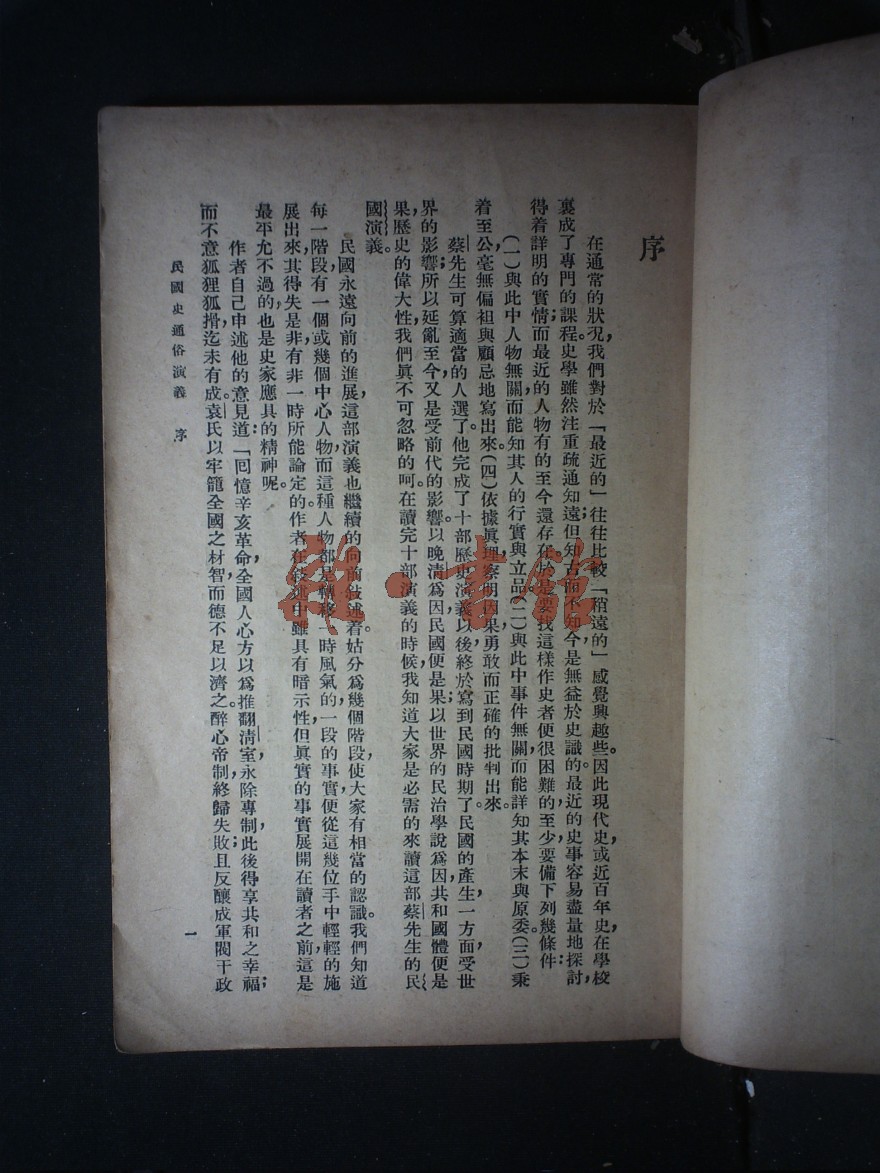 序
在通常的狀況，我們對於「最近的」往往比較「稍遠的」感覺興趣些。因此現代史，或近百年史，在學校
裏成了專門的課程。史學雖然注重疏通知遠；但知古而不知今，是無益於史識的。最近的史事容易盡量地探討；
得着詳明的實情；而最近的人物有的至今還存在，於是要找這樣作史者便很困難的。至少要備下列幾條件
（一）與此中人物無關，而能知其人的行實與立品，（二）與此中事件無關，而能詳知其本末與原委。（三）秉
着至公毫無偏袒與顧忌地寫出來。（四）依據眞理，察明因果，勇敢而正確的批判出來。
蔡先生可算適當的人選了。他完成了十部歷史演義以後，終於寫到民國時期了。民國的產生，一方面受世
界的影響；所以延亂至今，又是受前代的影響。以晚清爲因，民國便是果；以世界的民治學說爲因，共和國體便是
果。歷史的偉大性，我們眞不可忽略的呵。在讀完十部演義的時候，我知道大家是必需的來讀這部蔡先生的民
國演義。
民國永遠向前的進展，這部演義也繼續的向前敍述着。姑分爲幾個階段，使大家有相當的認識。我們知道
每一階段有一個或幾個中心人物，而這種人物都是轉移一時風氣的。一段的事實，便從這幾位手中輕輕的施
展出來，其得失是非，有非一時所能論定的。作者在敍述中雖具有暗示性，但眞實的事實展開在讀者之前，這是
最平允不過的，也是史家應具的精神呢。
作者自己申述他的意見道：「回憶辛亥革命，全國人心方以爲推翻清室，永除專制，此後得享共和之幸福；
而不意狐狸狐搰，迄未有成。袁氏以牢籠全國之材智，而德不足以濟之。醉心帝制，終歸失敗；且反釀成軍閥干政
民國史通俗演義 序
一
雒書館